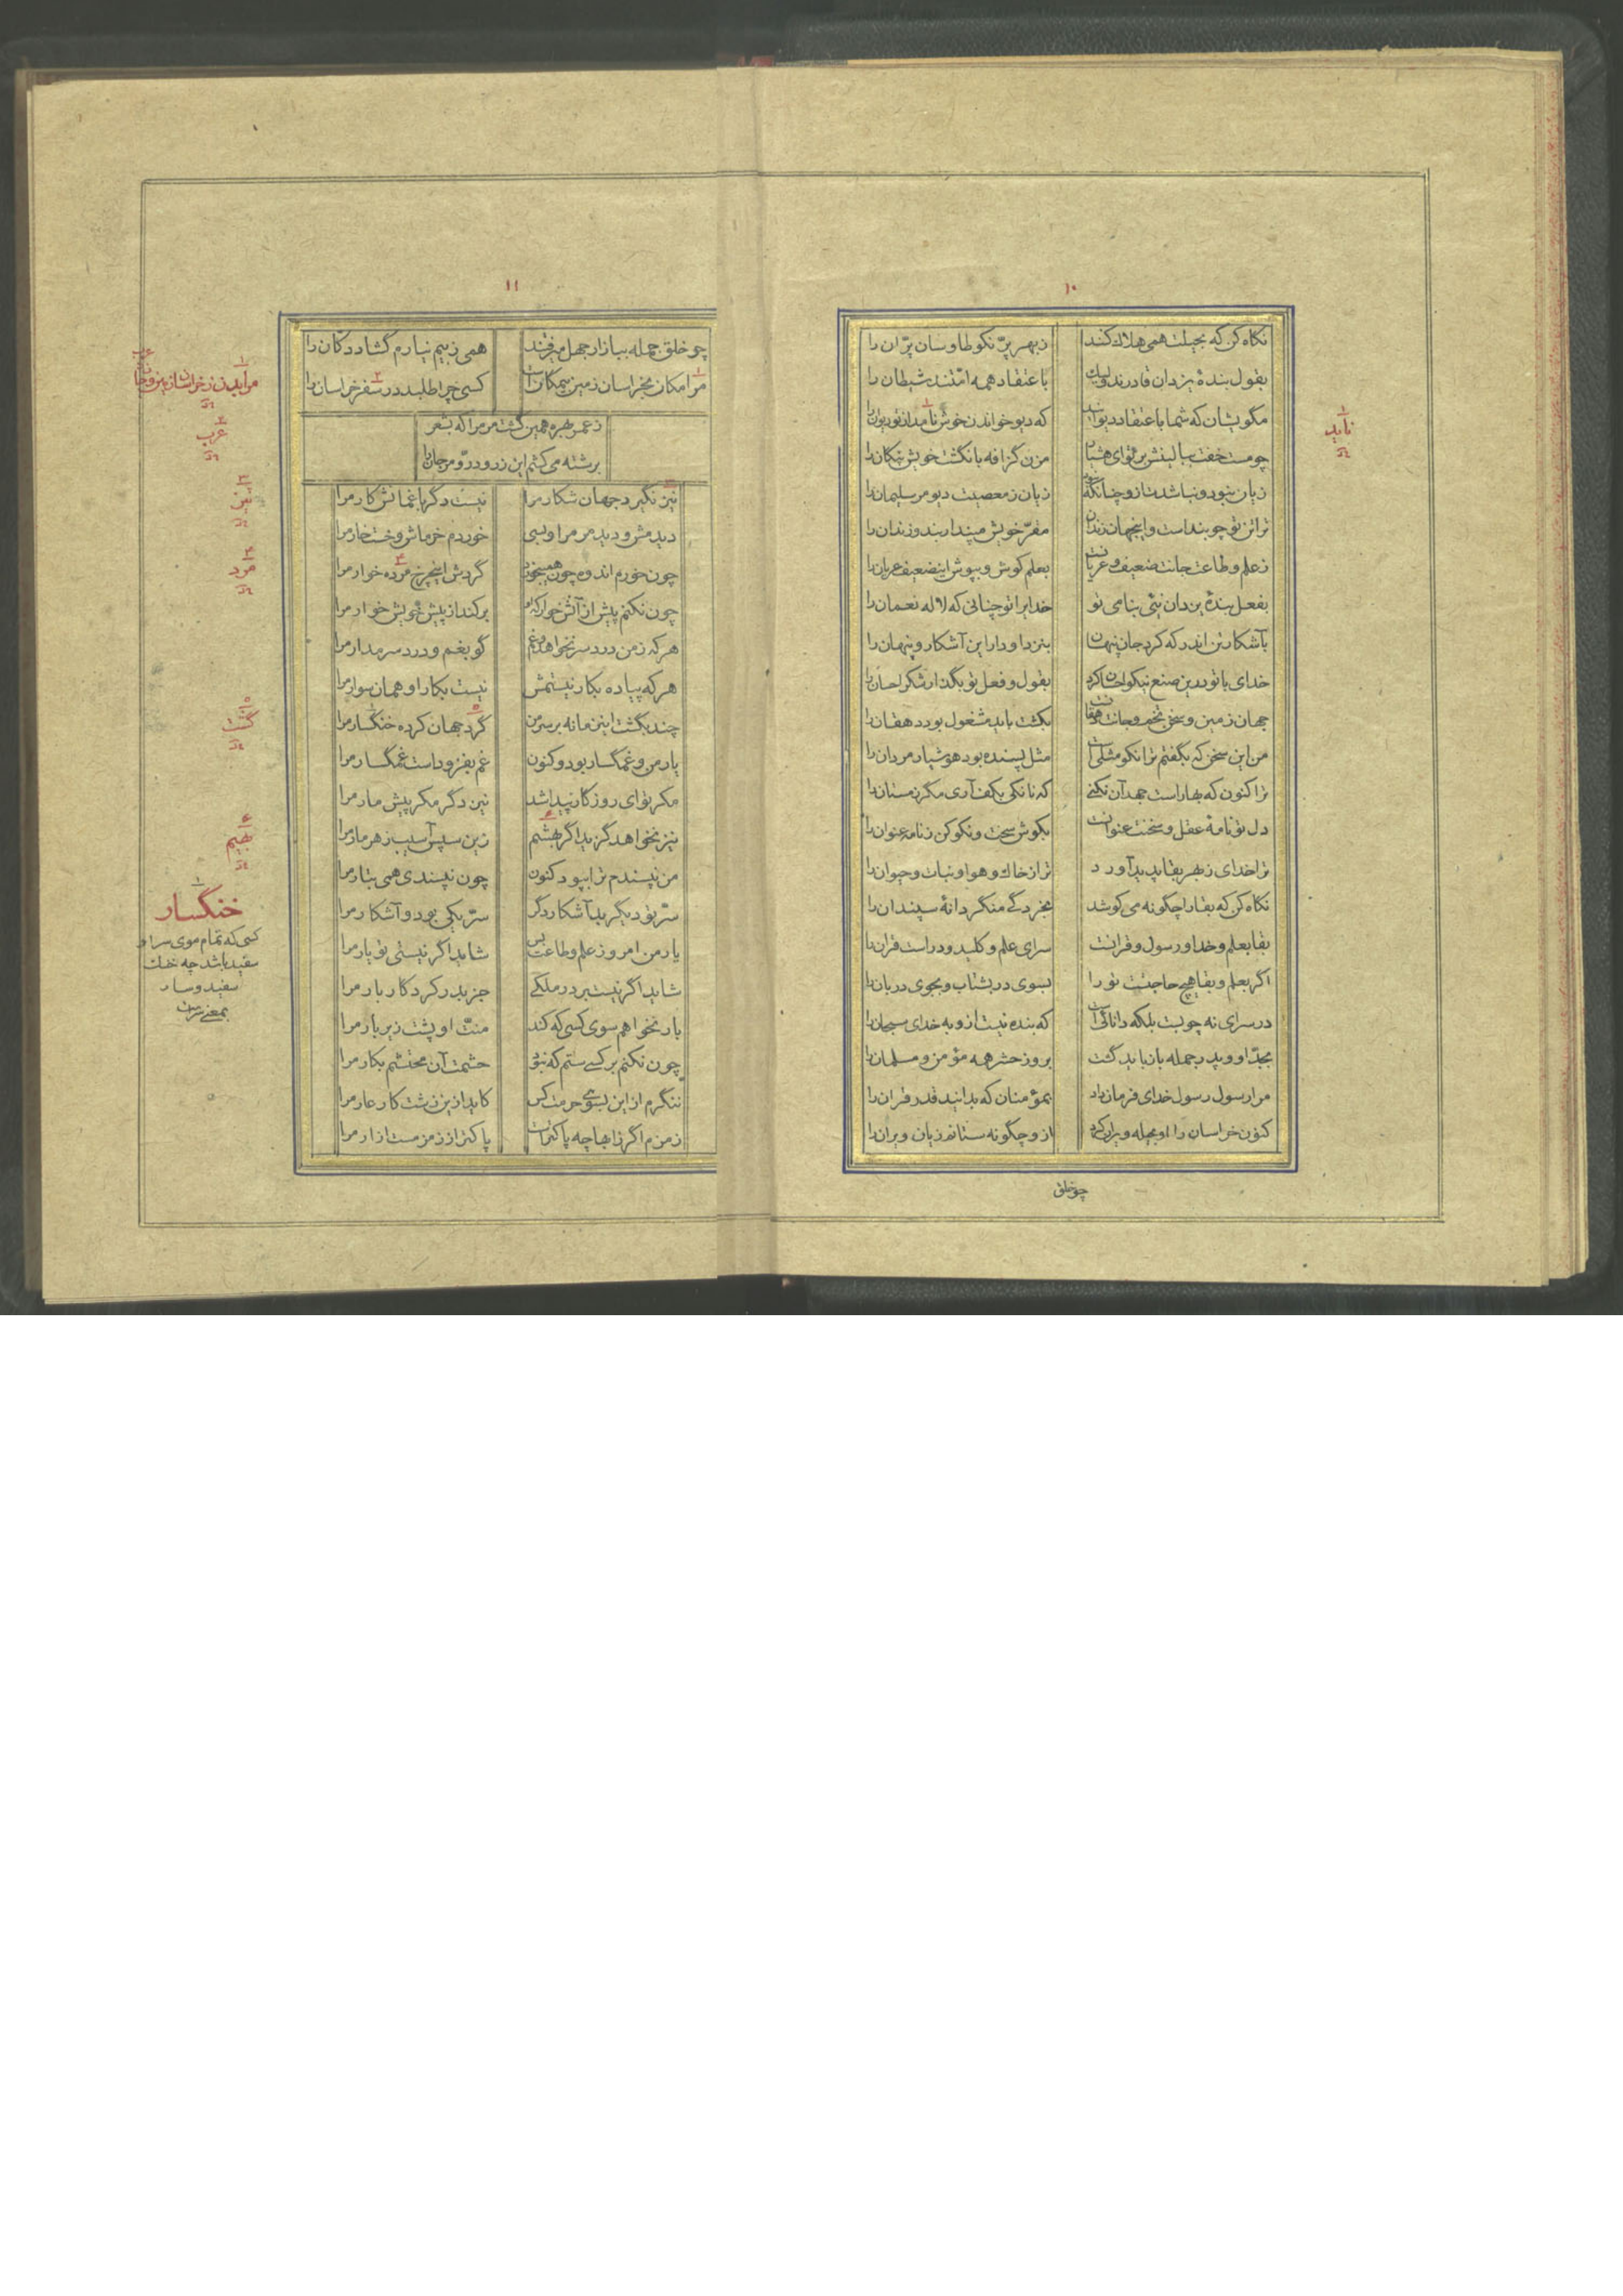 ۱۰
نگاه کن که بحیلت همی هلاک کنند
ز بهر پرّ نکو طاوسان پرّان را
بقول بندهٔ یزدان قادرند ولیک
باعتقاد همه امّتند شیطان را
مگویشان که شما باعتقاد دیوانید
که دیو خواندن خوش نامد از تو دیوان را
چو مست خفت ببالینش بر تو ای هشیار
مزن گزافه بانگشت خویش پنگان را
زیان نبود و نباشد ازو چنانکه نبود
زیان ز معصیت دیو مر سلیمان را
ترا تن تو چو بند است و اینجهان زندان
مقرّ خویش مپندار بند و زندان را
ز علم و طاعت جانت ضعیف و عریانست
بعلم کوش و بپوش این ضعیف عریان را
بفعل بندهٔ یزدان نئی بنامی تو
خدایرا تو چنانی که لاله نعمان را
بآشکار تن اندر که کرد جان پنهان
بنزد او دار این آشکار و پنهان را
خدای با تو درین صنع نیکو احسان کرد
بقول و فعل تو بگذار شکر احسان را
جهان زمین و سخن تخم و جانت دهقانست
بکشت باید مشغول بود دهقان را
من این سخن که بگفتم ترا نکو مثلست
مثل پسنده بود هوشیار مردان را
ترا کنون که بهار است جهد آن نکنی
که نانکی بکف آری مگر زمستان را
دل تو نامهٔ عقل و سخنت عنوانست
بکوش سخت و نکو کن ز نامه عنوان را
ترا خدای ز بهر بقا پدید آورد
ترا ز خاک و هوا و نبات و حیوان را
نگاه کن که بقا را چگونه می کوشد
بخردگی منگر دانهٔ سپندان را
بقا بعلم و خدا و رسول و فرانت
سرای علم و کلید و در است قران را
اگر بعلم و بقا هیچ حاجتست تو را
بسوی در بشتاب و بجوی دربان را
در سرای نه چوبست بلکه دانائیست
که بنده نیست ازو به خدای سبحان را
بجدّ او و پدر جمله باز باید گشت
بروز حشر همه مؤمن و مسلمان را
مرا رسول رسول خدای فرمان داد
بمؤمنان که بدانید قدر قران را
کنون خراسان را او بجمله ویران کرد
ازو چگونه ستانم زبان ویران را
چو خلق
۱
ناید
۱۱
چو خلق جمله ببازار جهل رفتند
همی ز بیم نیارم گشاد دکان را
مرا مکان بخراسان زمین بیمگانست
کسی چرا طلبد در سفر خراسان را
ز عمر بهره همین گشت مر مرا که بشعر
برشته می کشم این زر و درّ و مرجان را
نیز نگیرد جهان شکار مرا
نیست دگر با غمانش کار مرا
دیدمش و دید مر مرا و بسی
خوردم خرماش و خست خار مرا
چون خورم اندوه چون همیخورد
گردش این چرخ مرده خوار مرا
چون نکنم پیش از آنش خوار که او
برکند از پیش خویش خوار مرا
هر که ز من درد سر نخواهد و غم
گو بغم و درد سر مدار مرا
هر که پیاده بکار نیستمش
نیست بکار او همان سوار مرا
چند بگشت این زمانه بر سر من
گرد جهان کرده خنگسار مرا
یار من و غمگسار بود و کنون
غم بفزوداست غمگسار مرا
مکر تو ای روزگار پیدا شد
نیز دگر مکر پیش مار مرا
نیز نخواهد گزید اگر بهشم
زین سپس آسیب زهر مار مرا
من نپسندم ترا بپود کنون
چون نپسندی همی بتار مرا
سرّ تو دیگر بد آشکار دگر
سرّ یکی بود و آشکار مرا
یار من امروز علم و طاعت بس
شاید اگر نیستی تو یار مرا
شاید اگر نیست بر در ملکی
جز بدر کردگار بار مرا
بار نخواهم سوی کسی که کند
منّت او پشت زیر بار مرا
چون نکنم بر کسی ستم که نبود
حشمت آن محتشم بکار مرا
ننگرم از این بسوی حرمت کس
کاید ازین زشت کار عار مرا
زمزم اگر ز آبها چه پاکتر است
پاکتر از زمزمست ازار مرا
۲
عرب
۳
نیز
۴
مرد
۵
گشت
۶
بهیم
۱
خنگسار
کسی که تمام موی سر او
سفید باشد چه خنگ
سفید و سار
بمعنی سر است